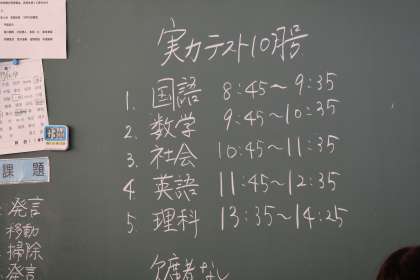 実力テスト10月号
1. 国語 8:45〜9:35
2. 数学 9:45〜10:35
3. 社会 10:45〜11:35
4. 英語 11:45〜12:35
5. 理科 13:35〜14:25
欠席者なし
課題
発言
移動
掃除
発言